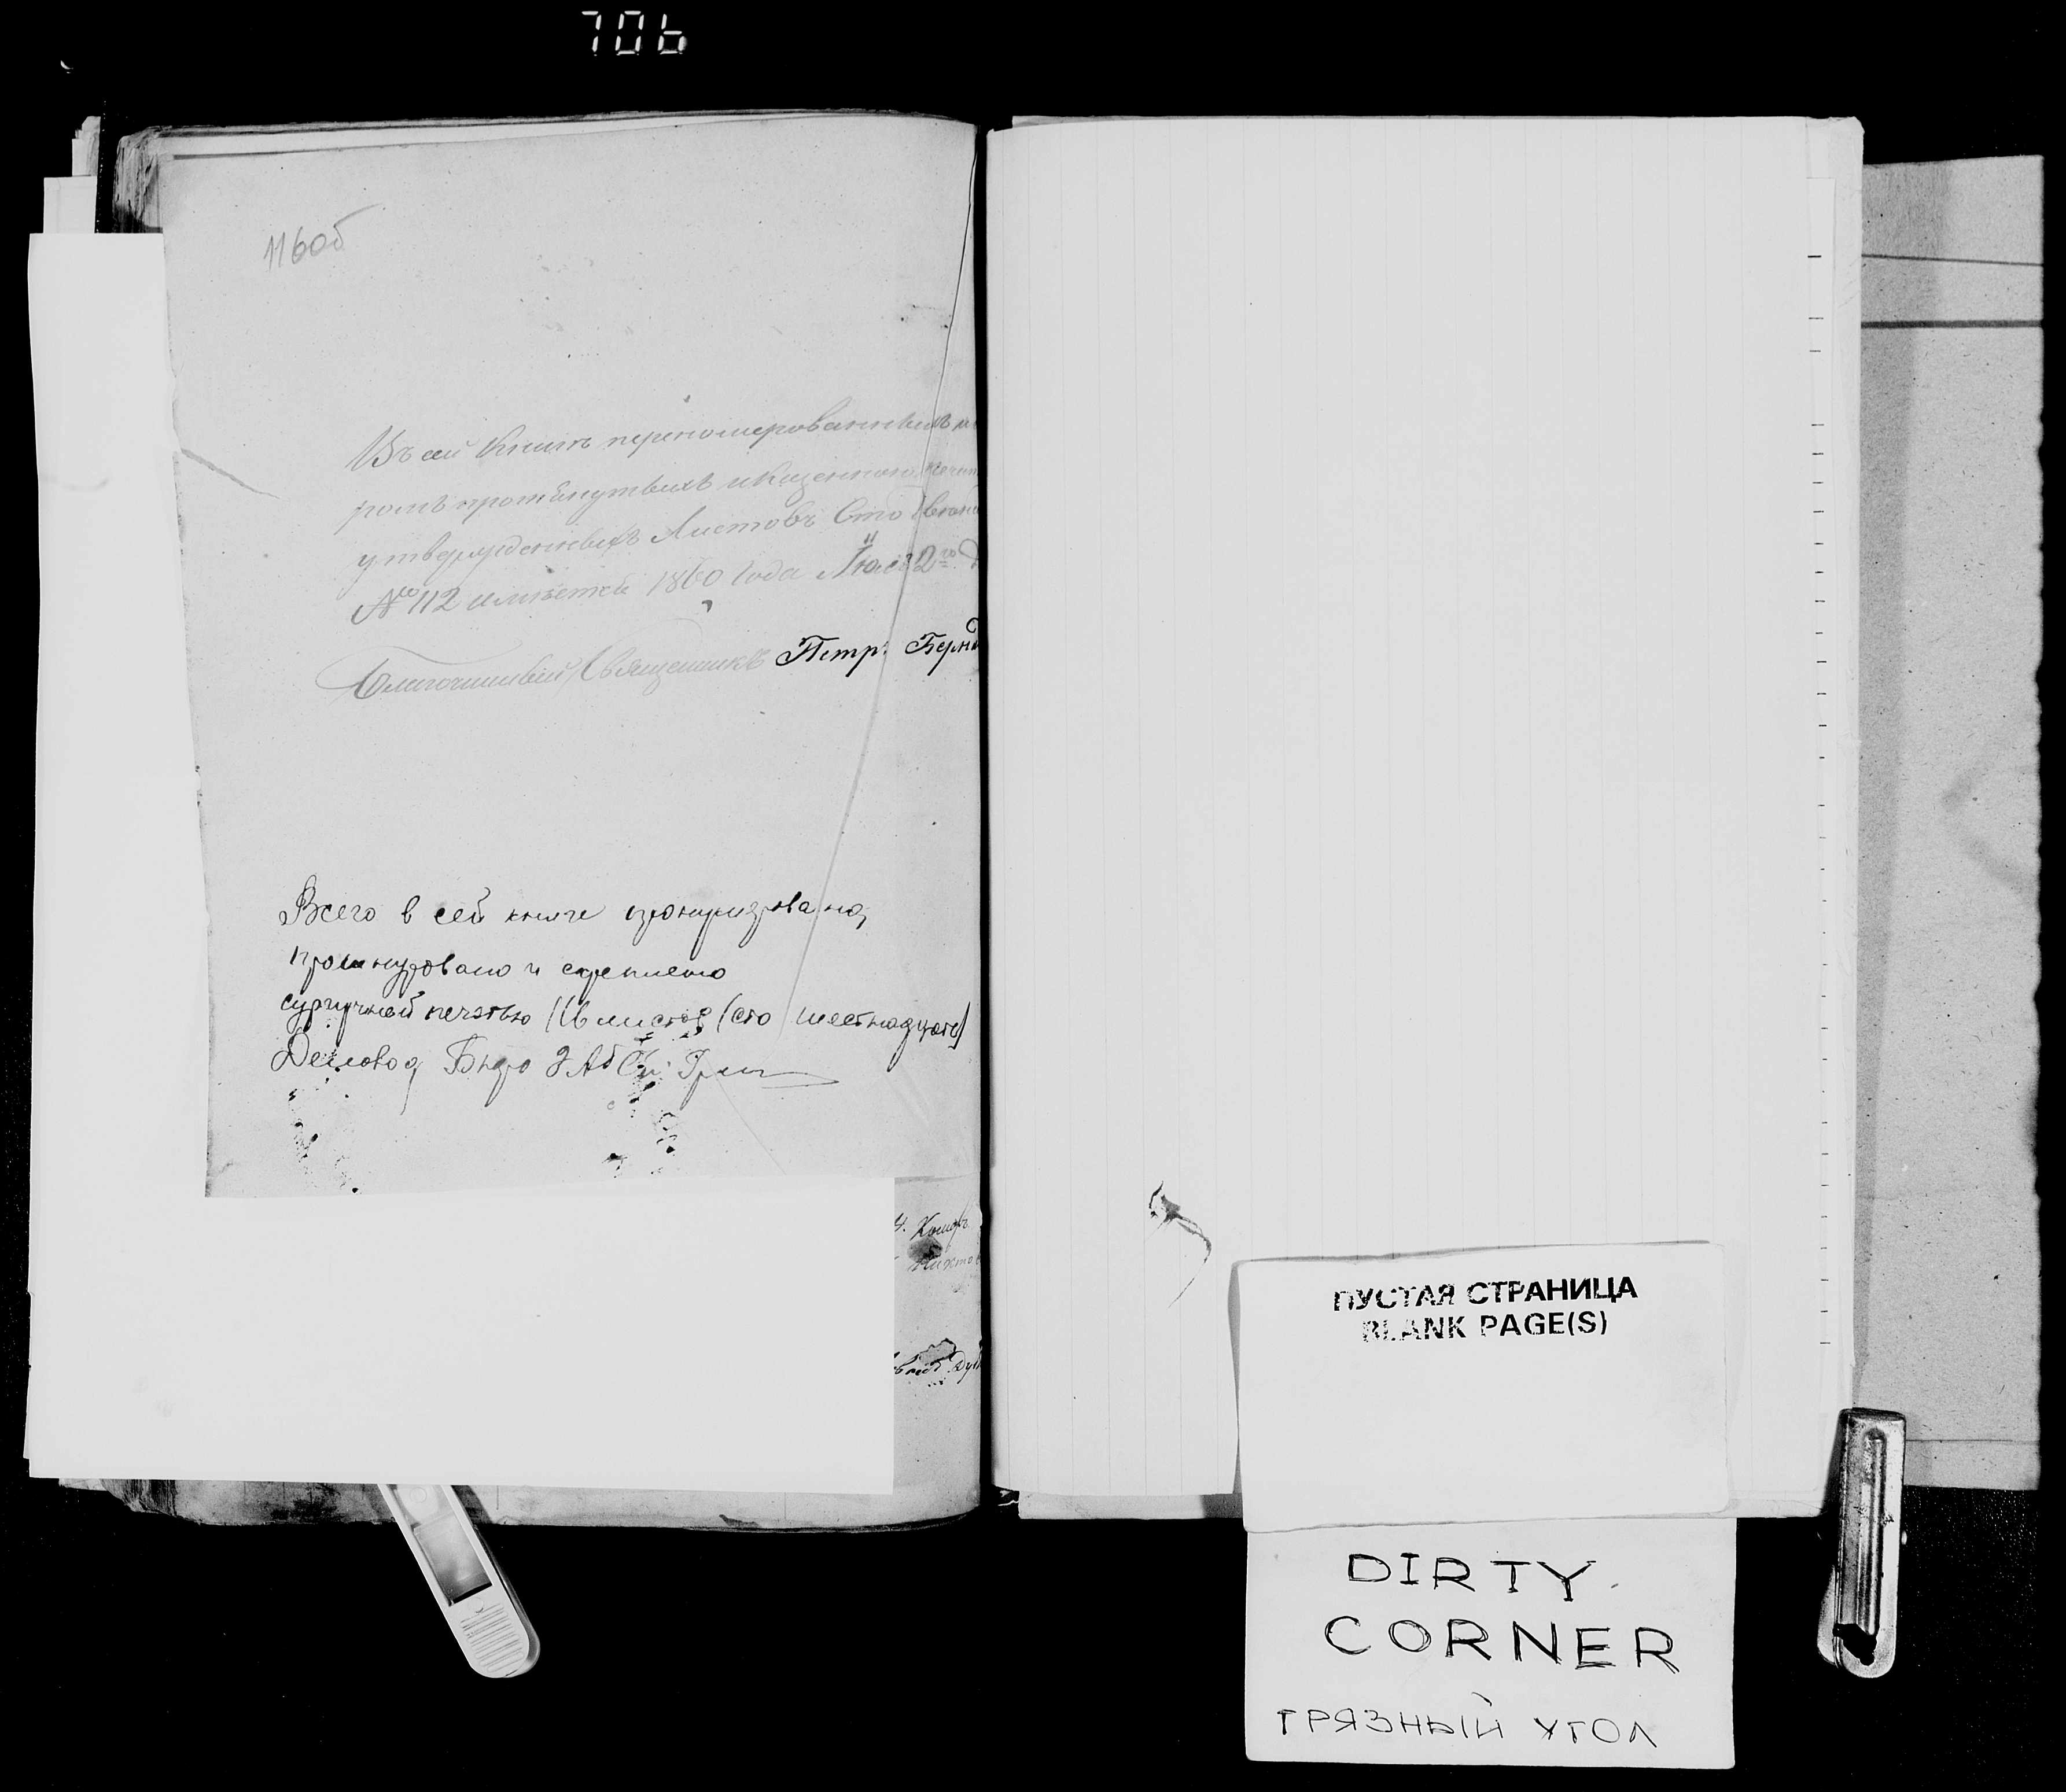 706
116об
Въ сей Книгѣ переномерованныхъ
ромъ протянутыхъ и казенною печат
утвержденныхъ Листовъ Сто двена
№ 112 имѣетсѧ 1860 Года Iюля 2го
Благочинный Священникъ Петръ Берна
Всего в сей книге пронумеровано,
прошнуровано и скреплено
сургучной печатью 116 листов (сто шестнадцать)
Деловод Бюро ЗАГС
ПУСТАЯ СТРАНИЦА
BLANK PAGE(S)
DIRTY
CORNER
ГРЯЗНЫЙ УГОЛ